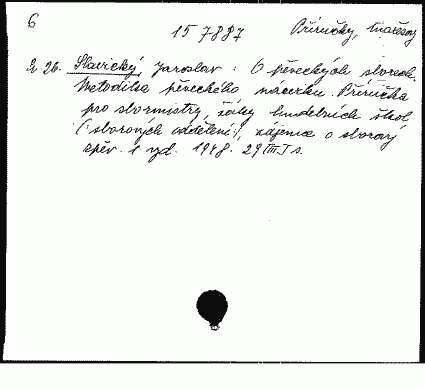 6
157887 Příručky,
R 26. Slavický Jaroslav : O pěveckých sborech.
Metodika pěveckého nácviku. Příručka
pro sbormistry, žáky hudebních škol
(: sborových oddělení :), zájemce o sborový
zpěv. 1 vyd. 1948. 29 III s.